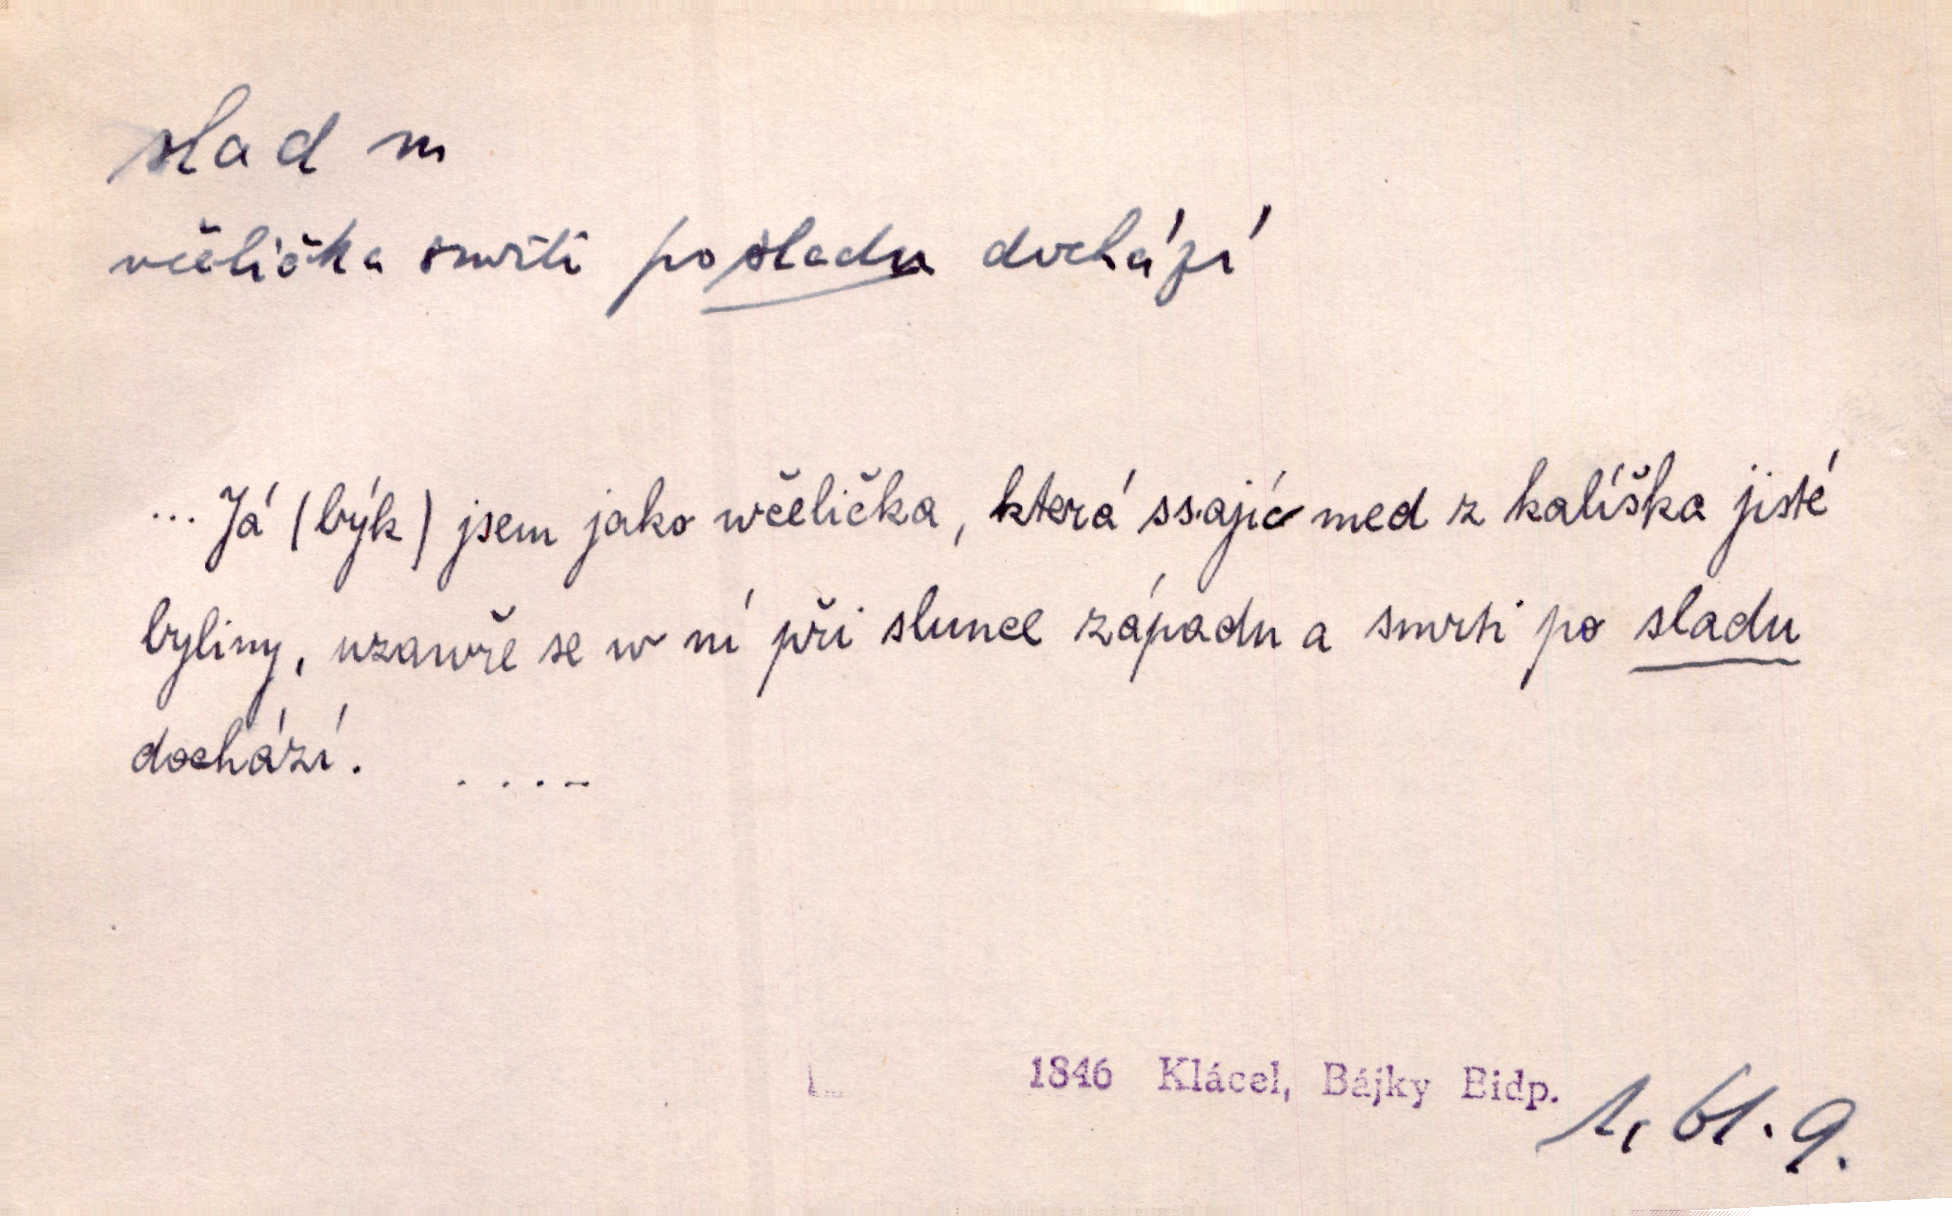 slad m
včelička smrti po sladu dochází
... Já (býk) jsem jako wčelička, která ssajíc med z kalíška jisté
byliny, uzawře se w ní při slunce západu a smrti po sladu
dochází. ....
1846 Klácel, Bájky Bidp. 1, 61. 9.